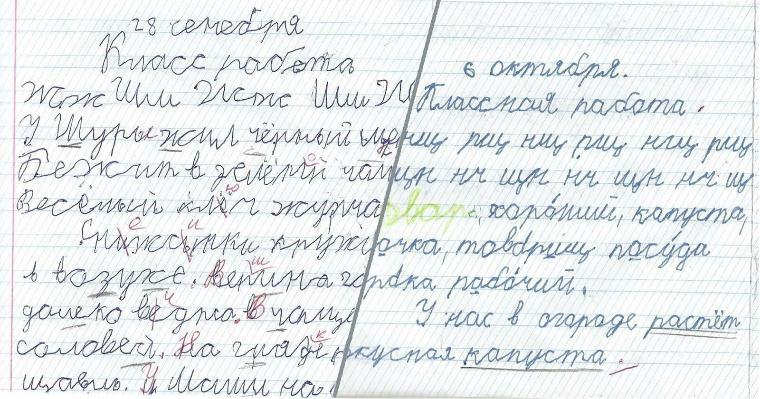 28 сенебря
Класс работа
Жж Шш Жж Шш Ж
У Шуры жил чёрный
Бежит в зелёный
Весёлый ключ журча
Снижынки круж
в возуже. Вершина го
далеко ведна. В чаще
соловей. На гряд
щавль. У Маши на
6 октября.
Классная работа.
нщ рщ нщ рщ нщ рщ
щн нч щн нч щн нч щ
вар, хороший, капуста,
чка, товарищ посуда
дка рабочий.
У нас в огороде растёт
вкусная капуста.